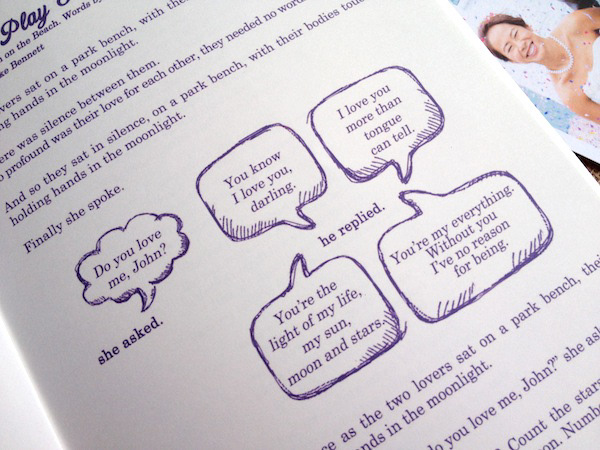 Play
on the Beach. Words by
ke Bennett
vers sat on a park bench, with the
ng hands in the moonlight.
ere was silence between them.
o profound was their love for each other, they needed no word
And so they sat in silence, on a park bench, with their bodies touc
holding hands in the moonlight.
Finally she spoke.
Do you love
me, John?
she asked.
You know
I love you,
darling.
I love you
more than
tongue
can tell.
he replied.
You're the
light of my life,
my sun,
moon and stars.
You're my everything.
Without you
I've no reason
for being.
ce as the two lovers sat on a park bench, thei
ands in the moonlight.
do you love me, John?" she ask
Count the stars
Numbe